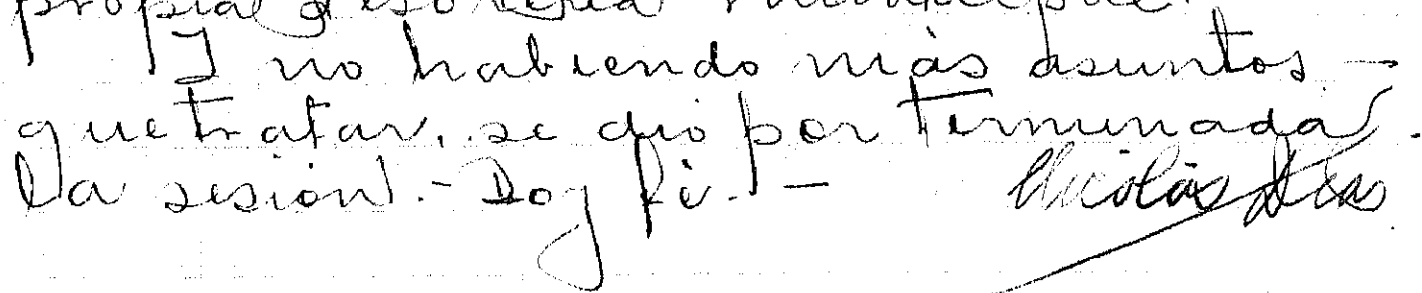 propia Tesorería Municipal.
Y no habiendo más asuntos -
que tratar, se dió por terminada -
la sesión. - Doy fé. - Nicolás Díaz